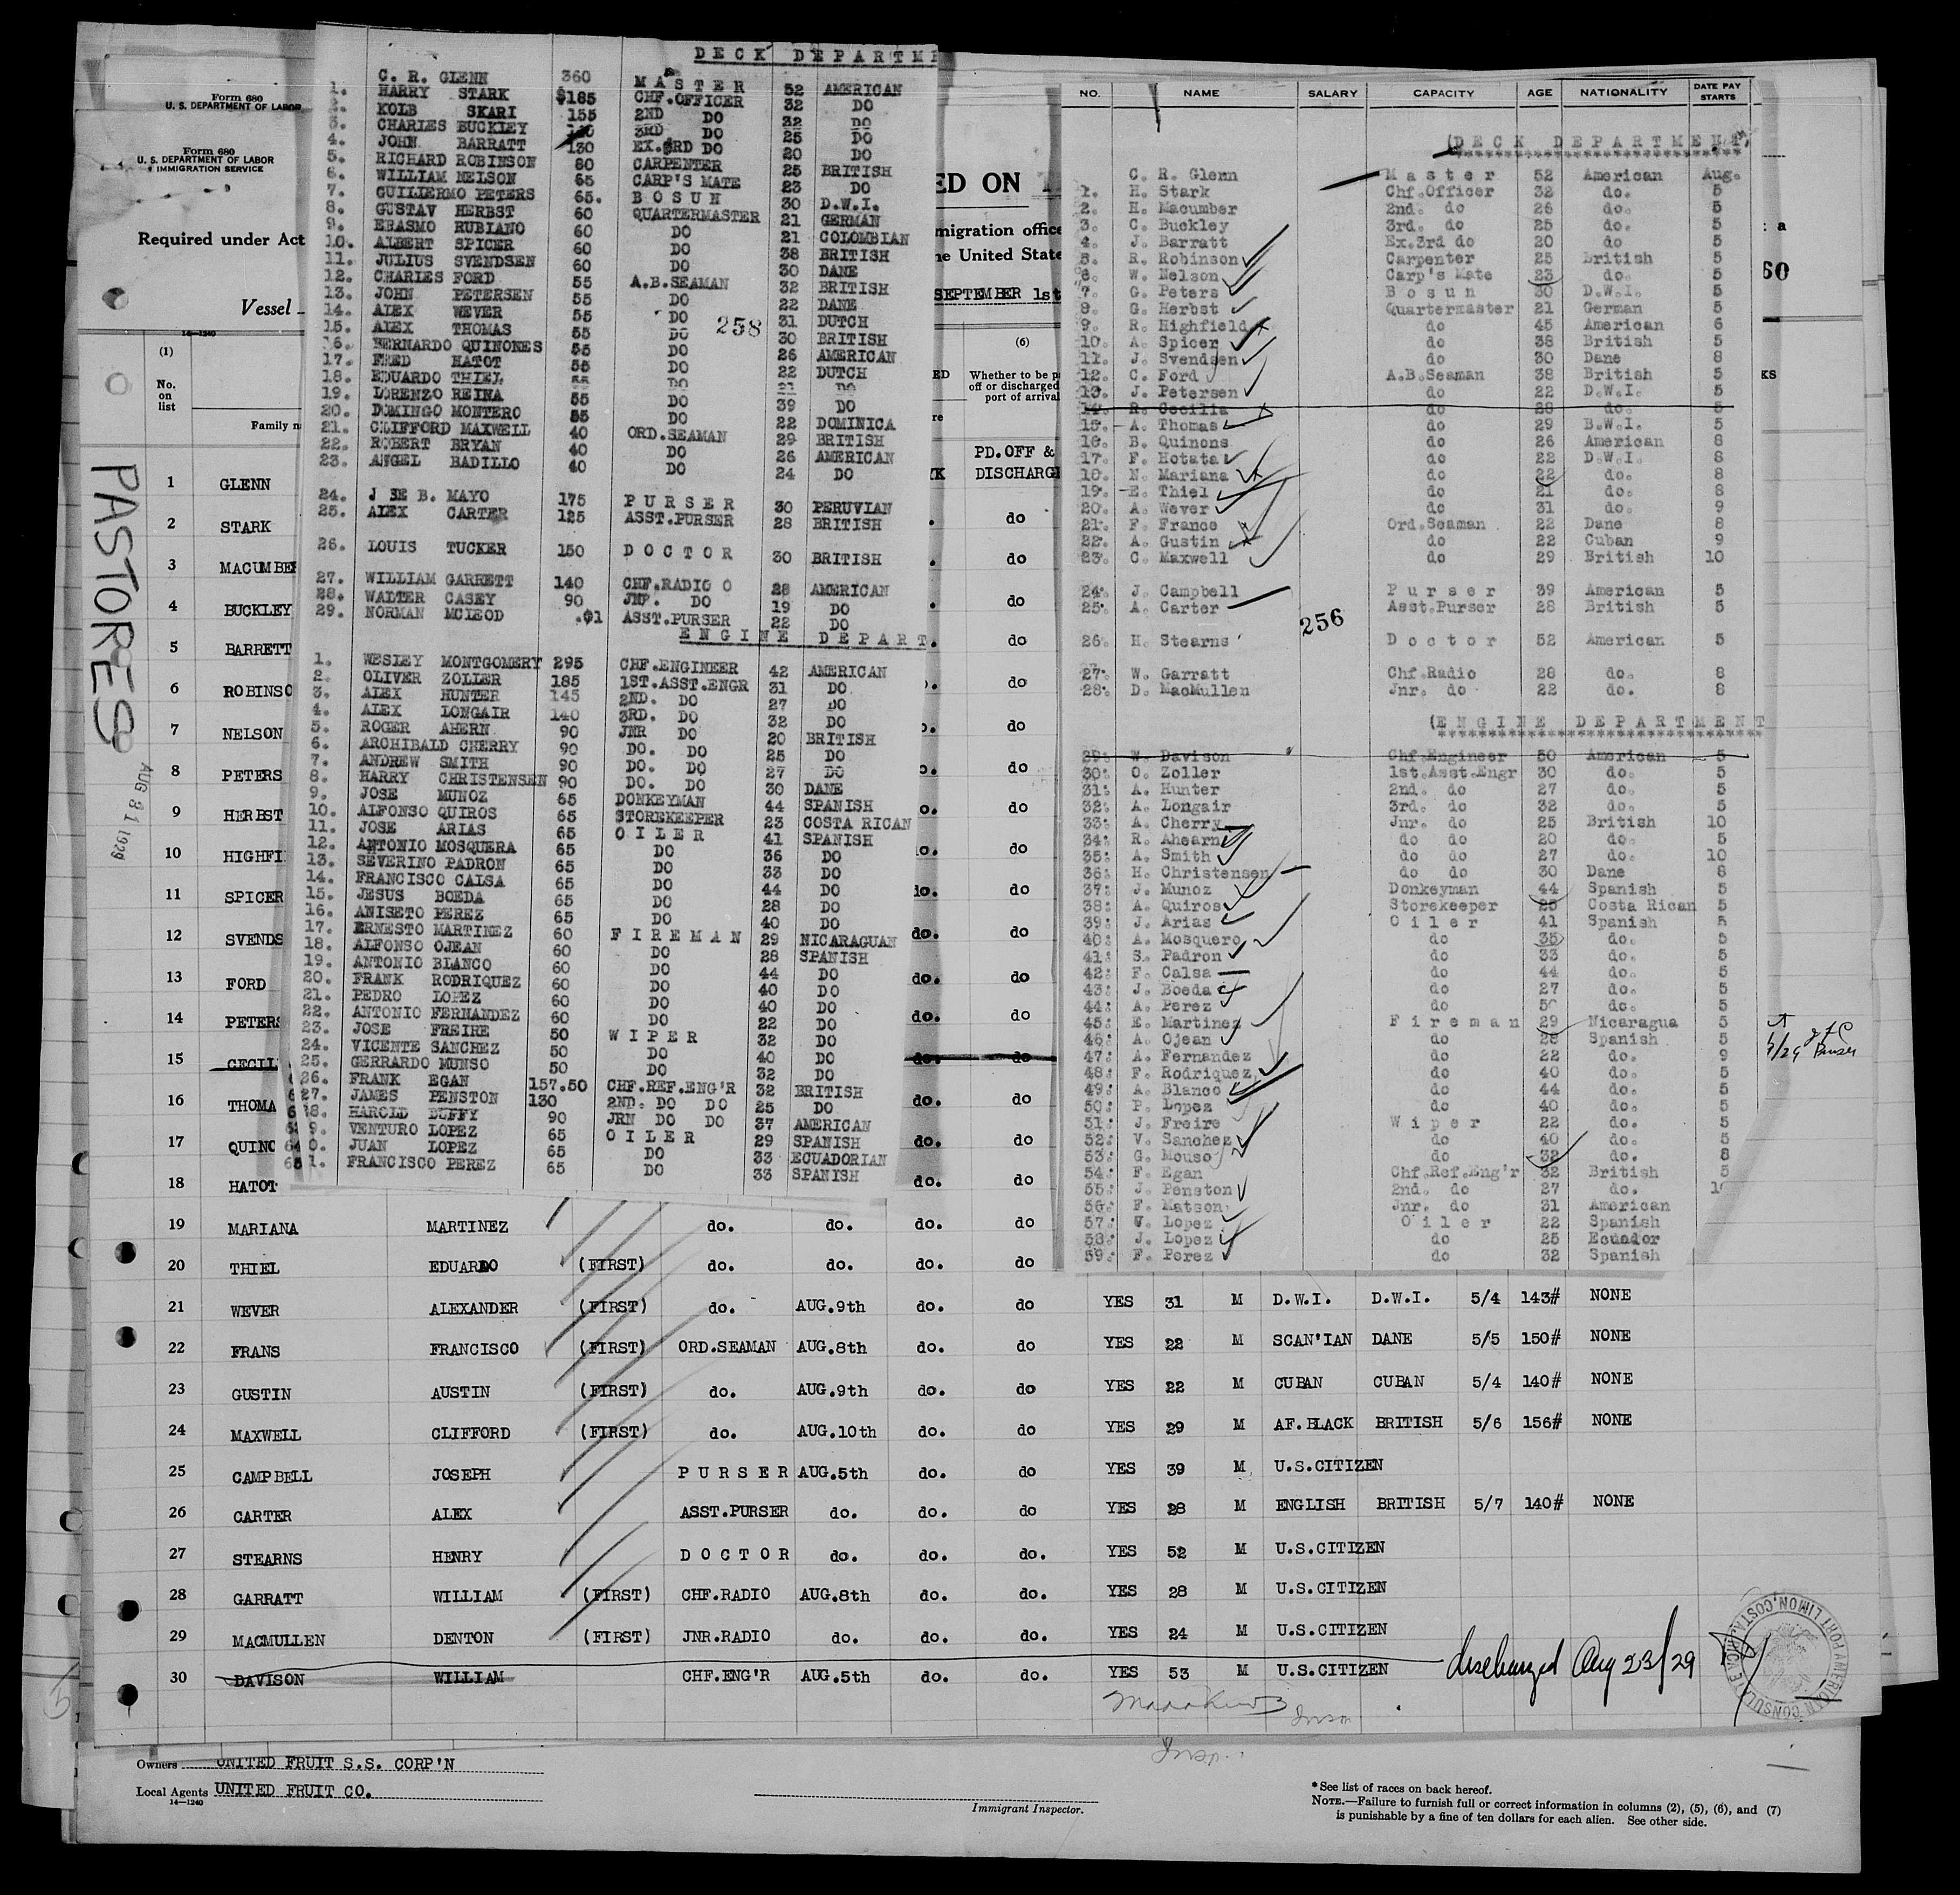 Form 680
U. S. DEPARTMENT OF LABOR
Form 680
U. S. DEPARTMENT OF LABOR
IMMIGRATION SERVICE
Required under Act
Vessel
14—1240
(1)
No. on list
Family n
PASTORES
AUG 31 1929
DECK DEPARTME
C. R. GLENN 360 MASTER 52 AMERICAN
1. HARRY STARK $185 CHF.OFFICER 32 DO
2. KOLB SKARI 155 2ND DO 32 DO
3. CHARLES BUCKLEY 3RD DO 25 DO
4. JOHN BARRATT 130 EX.3RD DO 20 DO
5. RICHARD ROBINSON 80 CARPENTER 25 BRITISH
6. WILLIAM NELSON 65 CARP'S MATE 23 DO
7. GUILIERMO PETERS 65. BOSUN 30 D.W.I.
8. GUSTAV HERBST 60 QUARTERMASTER 21 GERMAN
9. ERASMO RUBIANO 60 DO 21 COLOMBIAN
10. ALBERT SPICER 60 DO 38 BRITISH
11. JULIUS SVENDSEN 60 DO 30 DANE
12. CHARLES FORD 55 A.B.SEAMAN 32 BRITISH
13. JOHN PETERSEN 55 DO 22 DANE
14. ALEX WEVER 55 DO 31 DUTCH
15. ALEX THOMAS 55 DO 30 BRITISH
258
16. BERNARDO QUINONES 55 DO 26 AMERICAN
17. FRED HATOT 55 DO 22 DUTCH
18. EDUARDO THIEL 55 DO 21 DO
19. LORENZO REINA 55 DO 39 DO
20. DOMINGO MONTERO 55 DO 22 DOMINICA
21. CLIFFORD MAXWELL 40 ORD.SEAMAN 29 BRITISH
22. ROBERT BRYAN 40 DO 26 AMERICAN
23. ANGEL BADILLO 40 DO 24 DO
24. J SE B. MAYO 175 PURSER 30 PERUVIAN
25. ALEX CARTER 125 ASST.PURSER 28 BRITISH
26. LOUIS TUCKER 150 DOCTOR 30 BRITISH
27. WILLIAM GARRETT 140 CHF.RADIO O 28 AMERICAN
28. WALTER CASEY 90 JNR. DO 19 DO
29. NORMAN MCLEOD .$1 ASST.PURSER 22 DO
ENGINE DEPART.
1. WESLEY MONTGOMERY 295 CHF.ENGINEER 42 AMERICAN
2. OLIVER ZOLLER 185 1ST.ASST.ENGR 31 DO
3. ALEX HUNTER 145 2ND. DO 27 DO
4. ALEX LONGAIR 140 3RD. DO 32 DO
5. ROGER AHERN 90 JNR DO 20 BRITISH
6. ARCHIBALD CHERRY 90 DO. DO 25 DO
7. ANDREW SMITH 90 DO. DO 27 DO
8. HARRY CHRISTENSEN 90 DO. DO 30 DANE
9. JOSE MUNOZ 65 DONKEYMAN 44 SPANISH
10. ALFONSO QUIROS 65 STOREKEEPER 23 COSTA RICAN
11. JOSE ARIAS 65 OILER 41 SPANISH
12. ANTONIO MOSQUERA 65 DO 36 DO
13. SEVERINO PADRON 65 DO 33 DO
14. FRANCISCO CALSA 65 DO 44 DO
15. JESUS BOEDA 65 DO 28 DO
16. ANISETO PEREZ 65 DO 40 DO
17. ERNESTO MARTINEZ 60 FIREMAN 29 NICARAGUAN
18. ALFONSO OJEAN 60 DO 28 SPANISH
19. ANTONIO BLANCO 60 DO 44 DO
20. FRANK RODRIQUEZ 60 DO 40 DO
21. PEDRO LOPEZ 60 DO 40 DO
22. ANTONIO FERNANDEZ 60 DO 22 DO
23. JOSE FREIRE 50 WIPER 32 DO
24. VICENTE SANCHEZ 50 DO 40 DO
25. GERRARDO MUNSO 50 DO 32 DO
26. FRANK EGAN 157.50 CHF.REF.ENG'R 32 BRITISH
27. JAMES PENSTON 130 2ND. DO DO 25 DO
28. HAROLD DUFFY 90 JRN DO DO 37 AMERICAN
9. VENTURO LOPEZ 65 OILER 29 SPANISH
0. JUAN LOPEZ 65 DO 33 ECUADORIAN
1. FRANCISCO PEREZ 65 DO 33 SPANISH
ED ON
migration office
he United State
SEPTEMBER 1st
(6)
Whether to be p
off or discharged
port of arrival
PD.OFF &
DISCHARG
NO. NAME SALARY CAPACITY AGE NATIONALITY DATE PAY STARTS
(DECK DEPARTMENT,
C. R. Glenn Master 52 American Aug.
1. H. Stark Chf.Officer 32 do. 5
2. H. Macumber 2nd. do 26 do. 5
3. C. Buckley 3rd. do 25 do. 5
4. J. Barratt Ex.3rd do 20 do 5
5. R. Robinson Carpenter 25 British 5
6. W. Nelson Carp's Mate 23 do. 5
7. G. Peters Bosun 30 D.W.I. 5
8. G. Herbst Quartermaster 21 German 5
9. R. Highfield do 45 American 6
10. A. Spicer do 38 British 5
11. J. Svendsen do 30 Dane 8
12. C. Ford A.B.Seaman 38 British 5
13. J. Petersen do 22 D.W.I. 5
14. R. Cecilia do 28 do. 5
15. A. Thomas do 29 B.W.I. 5
16. B. Quinons do 26 American 8
17. F. Hotata do 22 D.W.I. 8
18. N. Mariana do 22 do. 8
19. E. Thiel do 21 do. 8
20. A. Wever do 31 do. 9
21. F. France Ord.Seaman 22 Dane 8
22. A. Gustin do 22 Cuban 9
23. C. Maxwell do 29 British 10
24. J. Campbell Purser 39 American 5
25. A. Carter Asst.Purser 28 British 5
256
26. H. Stearns Doctor 52 American 5
27. W. Garratt Chf.Radio 28 do. 8
28. D. MacMullen Jnr. do 22 do. 8
(ENGINE DEPARTMENT
29. W. Davison Chf.Engineer 50 American 5
30. O. Zoller 1st.Asst.Engr 30 do. 5
31. A. Hunter 2nd. do 27 do. 5
32. A. Longair 3rd. do 32 do. 5
33. A. Cherry Jnr. do 25 British 10
34. R. Ahearn do do 20 do. 5
35. A. Smith do do 27 do. 10
36. H. Christensen do do 30 Dane 8
37. J. Munoz Donkeyman 44 Spanish 5
38. A. Quiros Storekeeper 25 Costa Rican 5
39. J. Arias Oiler 41 Spanish 5
40. A. Mosquero do 35 do. 5
41. S. Padron do 33 do. 5
42. F. Calsa do 44 do. 5
43. J. Boeda do 27 do. 5
44. A. Perez do do. 5
45. E. Martinez Fireman 29 Nicaragua 5
46. A. Ojean do 28 Spanish 5
47. A. Fernandez do 22 do. 9
48. F. Rodriquez do 40 do. 5
49. A. Blanco do 44 do. 5
50. P. Lopez do 40 do. 5
51. J. Freire Wiper 22 do. 5
52. V. Sanchez do 40 do. 5
53. G. Mouso do 32 do. 8
54. F. Egan Chf.Ref.Eng'r 32 British 5
55. J. Penston 2nd. do 27 do.
56. F. Matson Jnr. do 31 American
57. V. Lopez Oiler 22 Spanish
58. J. Lopez do 25 Ecuador
59. F. Perez do 32 Spanish
1 GLENN
2 STARK do
3 MACUMBE do
4 BUCKLEY do
5 BARRETT do
6 ROBINSO do
7 NELSON do
8 PETERS do
9 HERBST do
10 HIGHFI do
11 SPICER do. do
12 SVENDS do. do
13 FORD do. do
14 PETERS do. do
15 CECIL do. do
16 THOMA do. do
17 QUINO do. do
18 HATOT do. do
19 MARIANA MARTINEZ do. do. do. do
20 THIEL EDUARDO (FIRST) do. do. do. do
21 WEVER ALEXANDER (FIRST) do. AUG.9th do. do YES 31 M D.W.I. D.W.I. 5/4 143# NONE
22 FRANS FRANCISCO (FIRST) ORD.SEAMAN AUG.8th do. do YES 22 M SCAN'IAN DANE 5/5 150# NONE
23 GUSTIN AUSTIN (FIRST) do. AUG.9th do. do YES 22 M CUBAN CUBAN 5/4 140# NONE
24 MAXWELL CLIFFORD (FIRST) do. AUG.10th do. do YES 29 M AF.BLACK BRITISH 5/6 156# NONE
25 CAMPBELL JOSEPH PURSER AUG.5th do. do YES 39 M U.S.CITIZEN
26 CARTER ALEX ASST.PURSER do. do. do YES 28 M ENGLISH BRITISH 5/7 140# NONE
27 STEARNS HENRY DOCTOR do. do. do. YES 52 M U.S.CITIZEN
28 GARRATT WILLIAM (FIRST) CHF.RADIO AUG.8th do. do. YES 28 M U.S.CITIZEN
29 MACMULLEN DENTON (FIRST) JNR.RADIO do. do. do. YES 24 M U.S.CITIZEN
30 DAVISON WILLIAM CHF.ENG'R AUG.5th do. do. YES 53 M U.S.CITIZEN discharged Aug 23/29
AMERICAN CONSULATE PORT LIMON, COSTA RICA
Insp.
Owners UNITED FRUIT S.S. CORP'N
Local Agents UNITED FRUIT CO.
14—1240
Immigrant Inspector.
*See list of races on back hereof.
NOTE.—Failure to furnish full or correct information in columns (2), (5), (6), and (7)
is punishable by a fine of ten dollars for each alien. See other side.